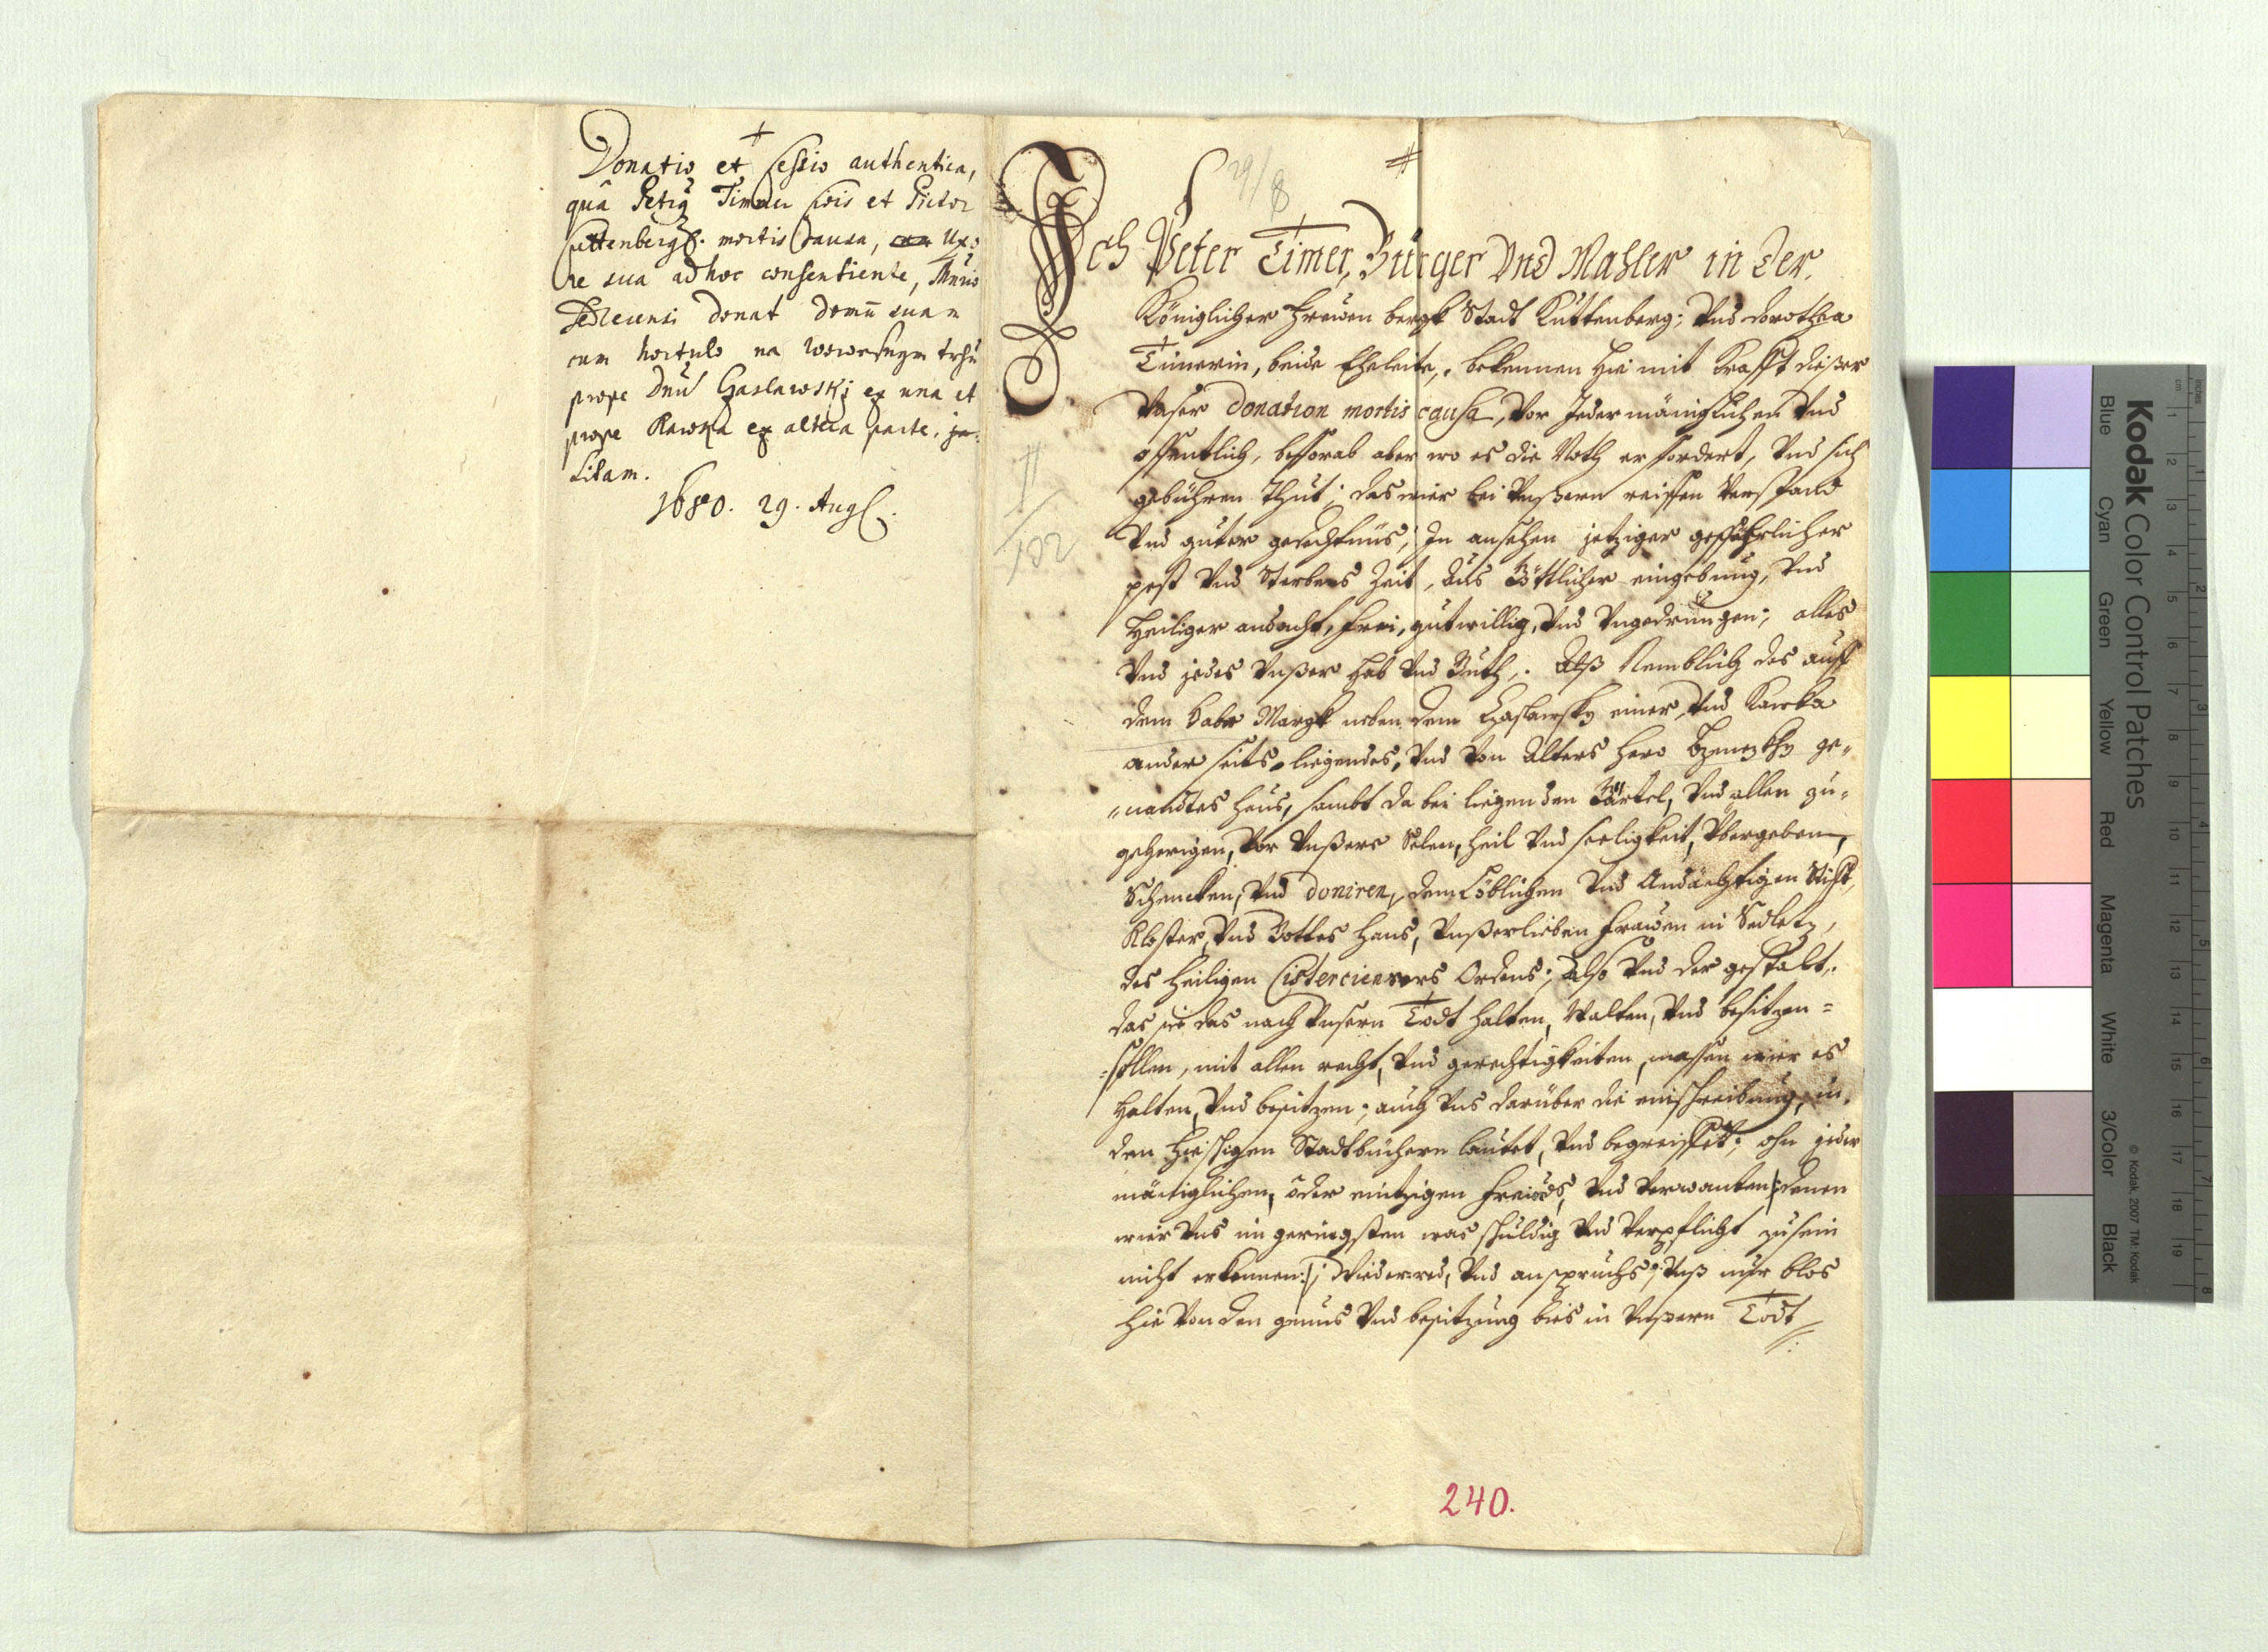 Donatio et Cessio authentica,
quâ Petrq Timmer Civis et Pictor
Cuttenberg. mortis causa, Uxo
re sua ad hoc consentiente, Mrio
Sedlecensi donat domū suam
cum hortulo na wowesnym trhu
prope Dnū Czaslawskj ex una et
prope Kawka ex altera parte, ja-
sitam.
1680. 29. Aug.
29/8
Ich Peter Timer, Bürger Vnd Mahler in der
Königlicher Freüen bergk Stadt Kuttenberg; Vnd Dorothea
Timerin, beide Eheleite, bekennen hie mit Krafft dießer
Vnser Donation mortis causa, Vor Jedermäniglichen Vnd
offentlich, beforab aber wo es die Noth erfordert, Vnd sich
gebühren thut; das wier bei Vnßern reiffen Verstand
Vnd guter gedechtnüs, In ansehen jetziger gefährlicher
pest Vnd Sterbens Zeit, Aus Göttlicher eingebung, Vnd
Heiliger andacht, frei, gutwillig, Vnd Vngedrungen; alles
Vnd jedes Vnßer Hab Vnd Guth, Alß Nemblich das auff
dem Haber Margk neben dem Czaslawsky einer, Vnd Kawka
ander seits liegendes, Vnd Von Alters hero ge-
nandtes Haus, sambt da bei liegenden Gärtel, Vnd allen zu-
gehorigen, Vor Vnßere Selen, Heil Vnd seeligkeit, Vbergeben,
Schencken, Vnd doniren, dem Löblichen Vnd Andächtigen Stifft,
Kloster, Vnd Gottes Haus, Vnßerlieben Frawen in Sedletz,
des Heiligen Cistercienser Ordens; Also Vnd der gestalt,
das sie das nach Vnsern Todt halten, Walten, Vnd besitzen
sollen, mit allen recht, Vnd gerechtigkeiten, massen wier es
halten, Vnd besitzen; auch Vns darüber die einschreibung, in
den hiessigen Stadtbüchern lautet, Vnd begreiffet; ohn jeder
mäniglichen, oder eintzigen Freinds, Vnd Verwanten /: denen
wier Vns im geringsten was schuldig Vnd Verpflicht zu sein
nicht erkennen :/ Wiederred, Vnd anspruchs; Vnß nur blos
hie Von den genus Vnd besitzung bies in Vnßern Todt
102
240.
Kodak Color Control Patches
Blue Cyan Green Yellow Red Magenta White 3/Color Black
© Kodak, 2007 TM: Kodak
inches 1 2 3 4 5 6 7 8
cm 1 2 3 4 5 6 7 8 9 10 11 12 13 14 15 16 17 18 19